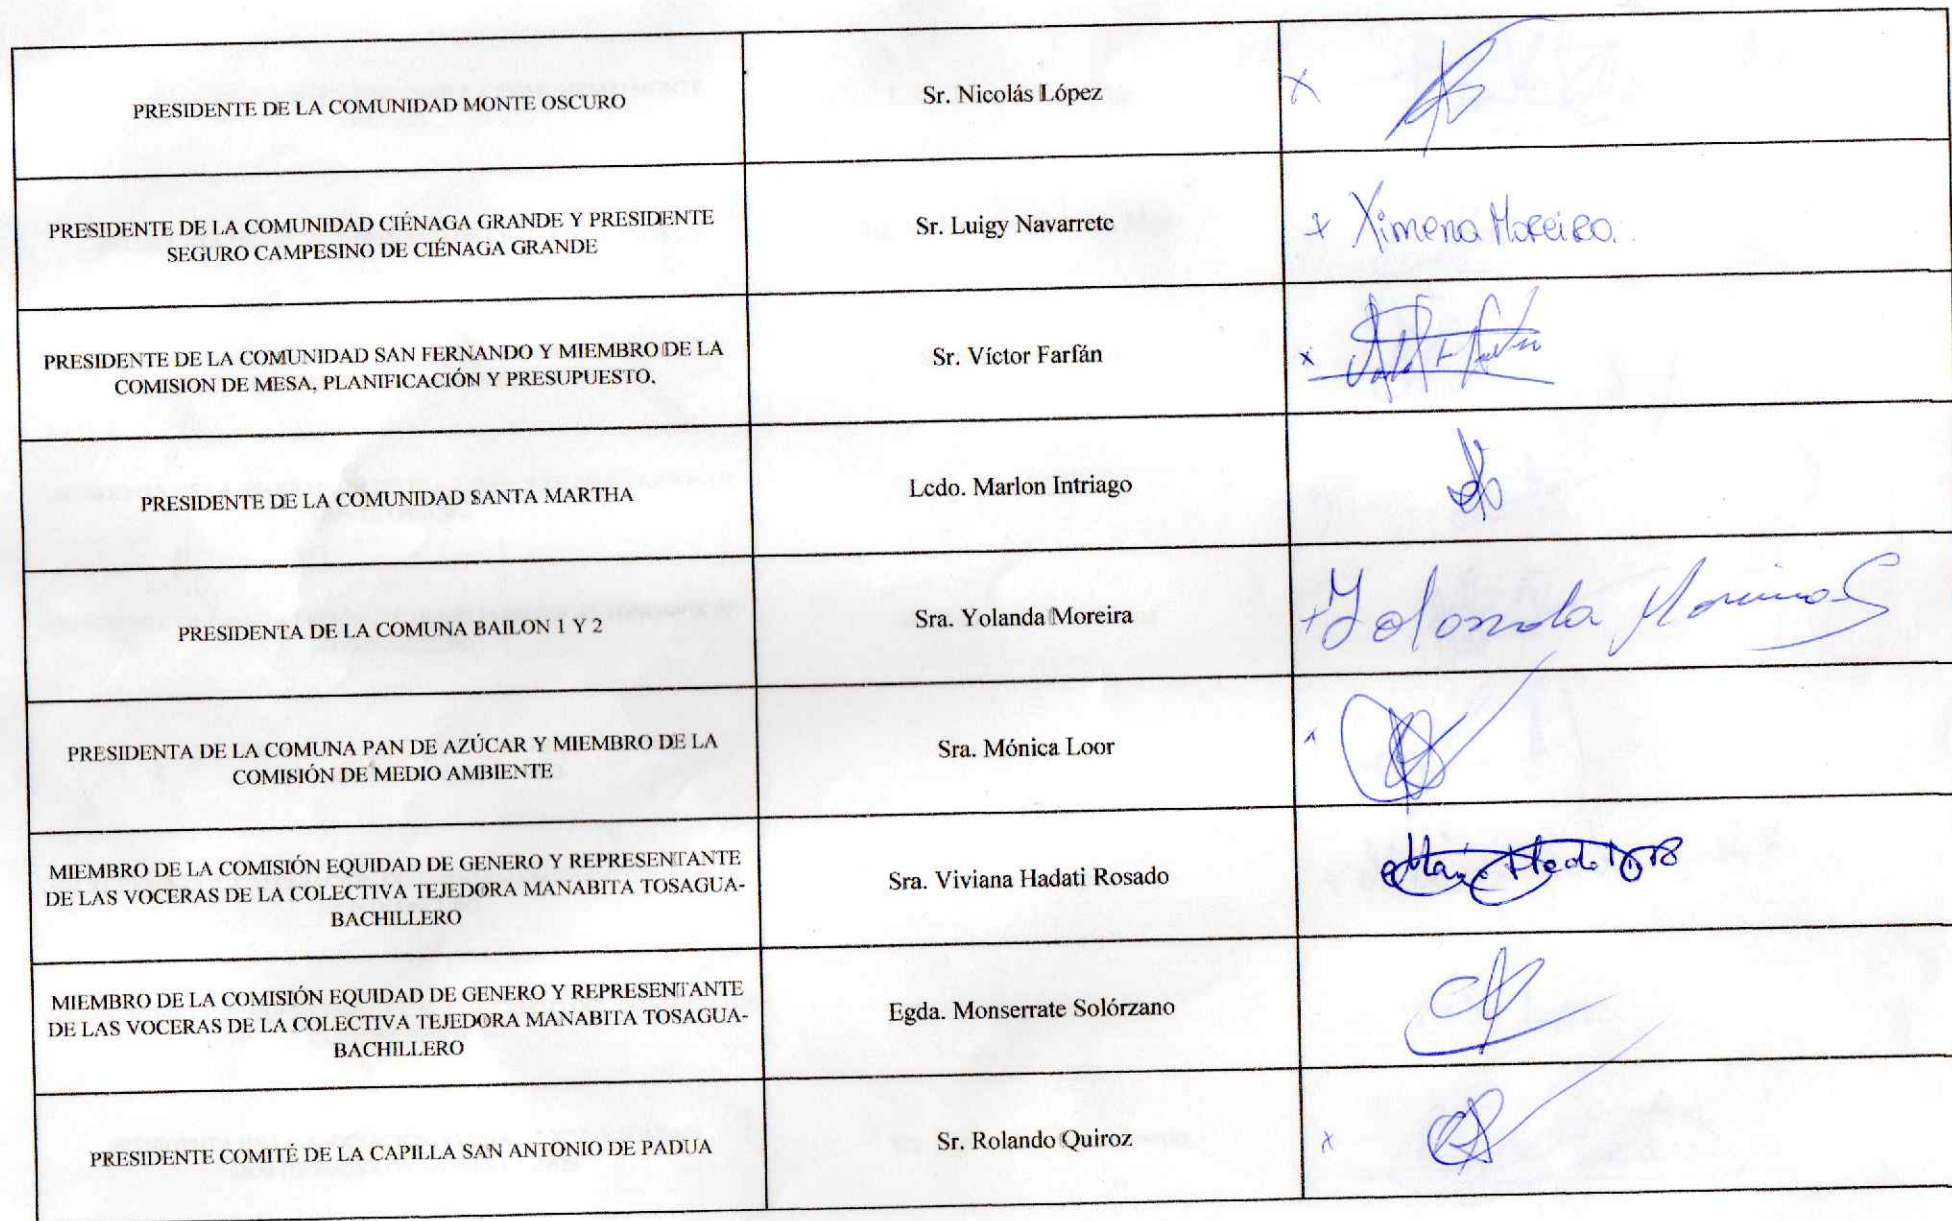 PRESIDENTE DE LA COMUNIDAD MONTE OSCURO
Sr. Nicolás López
x
PRESIDENTE DE LA COMUNIDAD CIÉNAGA GRANDE Y PRESIDENTE
SEGURO CAMPESINO DE CIÉNAGA GRANDE
Sr. Luigy Navarrete
x Ximena Moreira.
PRESIDENTE DE LA COMUNIDAD SAN FERNANDO Y MIEMBRO DE LA
COMISION DE MESA, PLANIFICACIÓN Y PRESUPUESTO.
Sr. Víctor Farfán
x
PRESIDENTE DE LA COMUNIDAD SANTA MARTHA
Lcdo. Marlon Intriago
PRESIDENTA DE LA COMUNA BAILON 1 Y 2
Sra. Yolanda Moreira
x Yolanda Moreira
PRESIDENTA DE LA COMUNA PAN DE AZÚCAR Y MIEMBRO DE LA
COMISIÓN DE MEDIO AMBIENTE
Sra. Mónica Loor
x
MIEMBRO DE LA COMISIÓN EQUIDAD DE GENERO Y REPRESENTANTE
DE LAS VOCERAS DE LA COLECTIVA TEJEDORA MANABITA TOSAGUA-
BACHILLERO
Sra. Viviana Hadati Rosado
MIEMBRO DE LA COMISIÓN EQUIDAD DE GENERO Y REPRESENTANTE
DE LAS VOCERAS DE LA COLECTIVA TEJEDORA MANABITA TOSAGUA-
BACHILLERO
Egda. Monserrate Solórzano
PRESIDENTE COMITÉ DE LA CAPILLA SAN ANTONIO DE PADUA
Sr. Rolando Quiroz
x